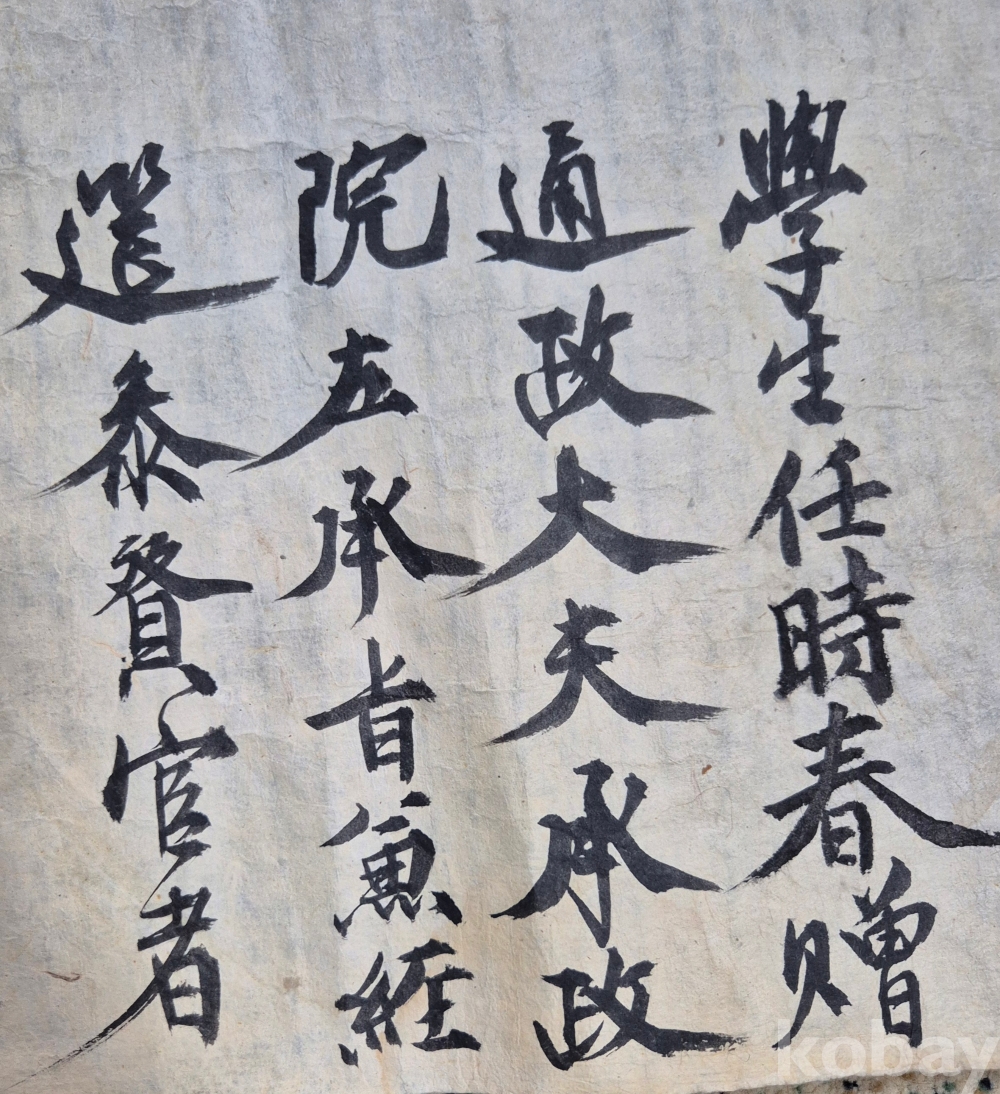 學生任時春贈
通政大夫承政
院左承旨兼經
筵參贊官者
kobay